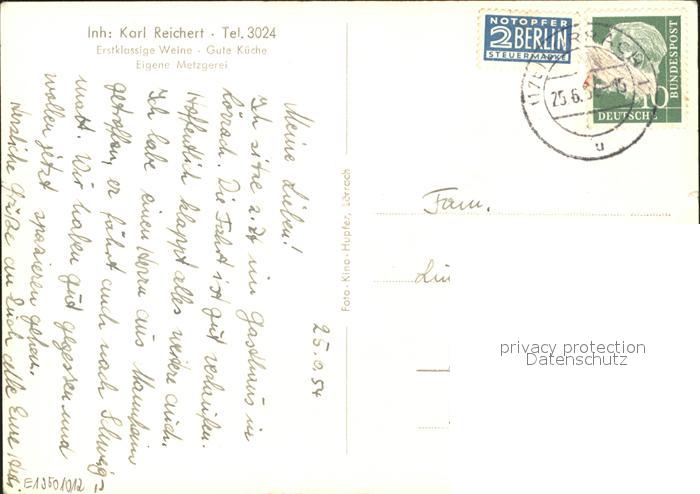 Inh: Karl Reichert · Tel. 3024
Erstklassige Weine · Gute Küche
Eigene Metzgerei
NOTOPFER
2 BERLIN
STEUERMARKE
DEUTSCHE BUNDESPOST
10
25.6.
25.6.54
Meine Lieben!
Ich sitze z. Zt im Gasthaus in
Lörrach. Die Fahrt ist gut verlaufen.
Hoffentlich klappt alles weitere auch.
Ich habe einen Herrn aus Mannheim
getroffen, er fährt auch nach
Wir haben gut gegessen und
wollen jetzt spazieren gehen.
Herzliche Grüße an Euch alle Eure
Foto-Kino-Hupfer, Lörrach
Fam.
privacy protection
Datenschutz